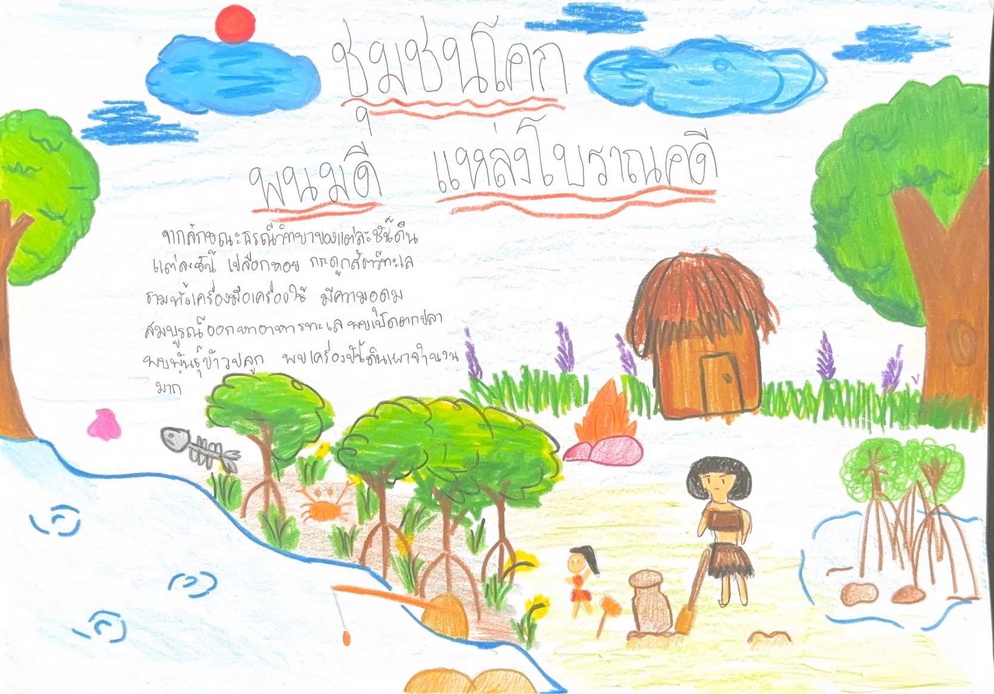 ชุมชนโคก
พนมดี แหล่งโบราณคดี
จากลักษณะธรณีวิทยาของแต่ละชั้นดิน
แต่ละชั้นมี เปลือกหอย กระดูกสัตว์ทะเล
รวมทั้งเครื่องมือเครื่องใช้ มีความอุดม
สมบูรณ์ออกหาอาหารทะเล พบเบ็ดตกปลา
พบพันธุ์ข้าวปลูก พบเครื่องปั้นดินเผาจำนวน
มาก